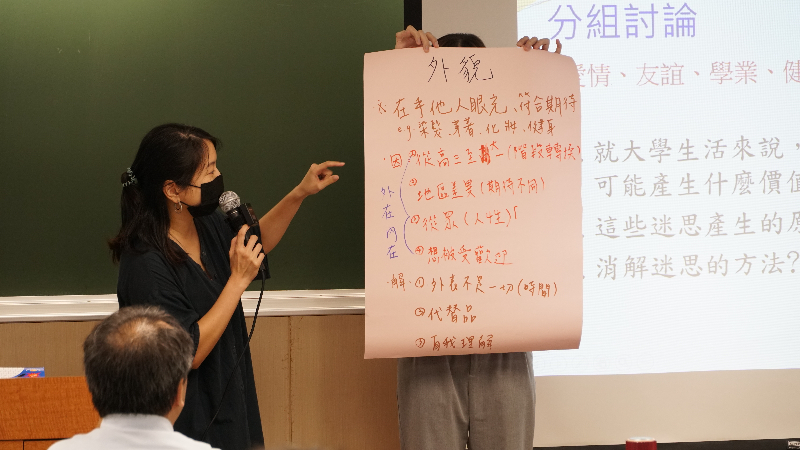 外貌」
在乎他人眼光、符合期待
e.g 染髮、穿著、化妝、健身
因 ① 從高三至大一(階段轉換)
② 地區差異(期待不同)
③ 從眾(人性)
④ 想被受歡迎
外在
內在
解 ① 外表不是一切(時間)
② 代替品
③ 自我理解
分組討論
愛情、友誼、學業、健
就大學生活來說，
可能產生什麼價值
這些迷思產生的原
消解迷思的方法?